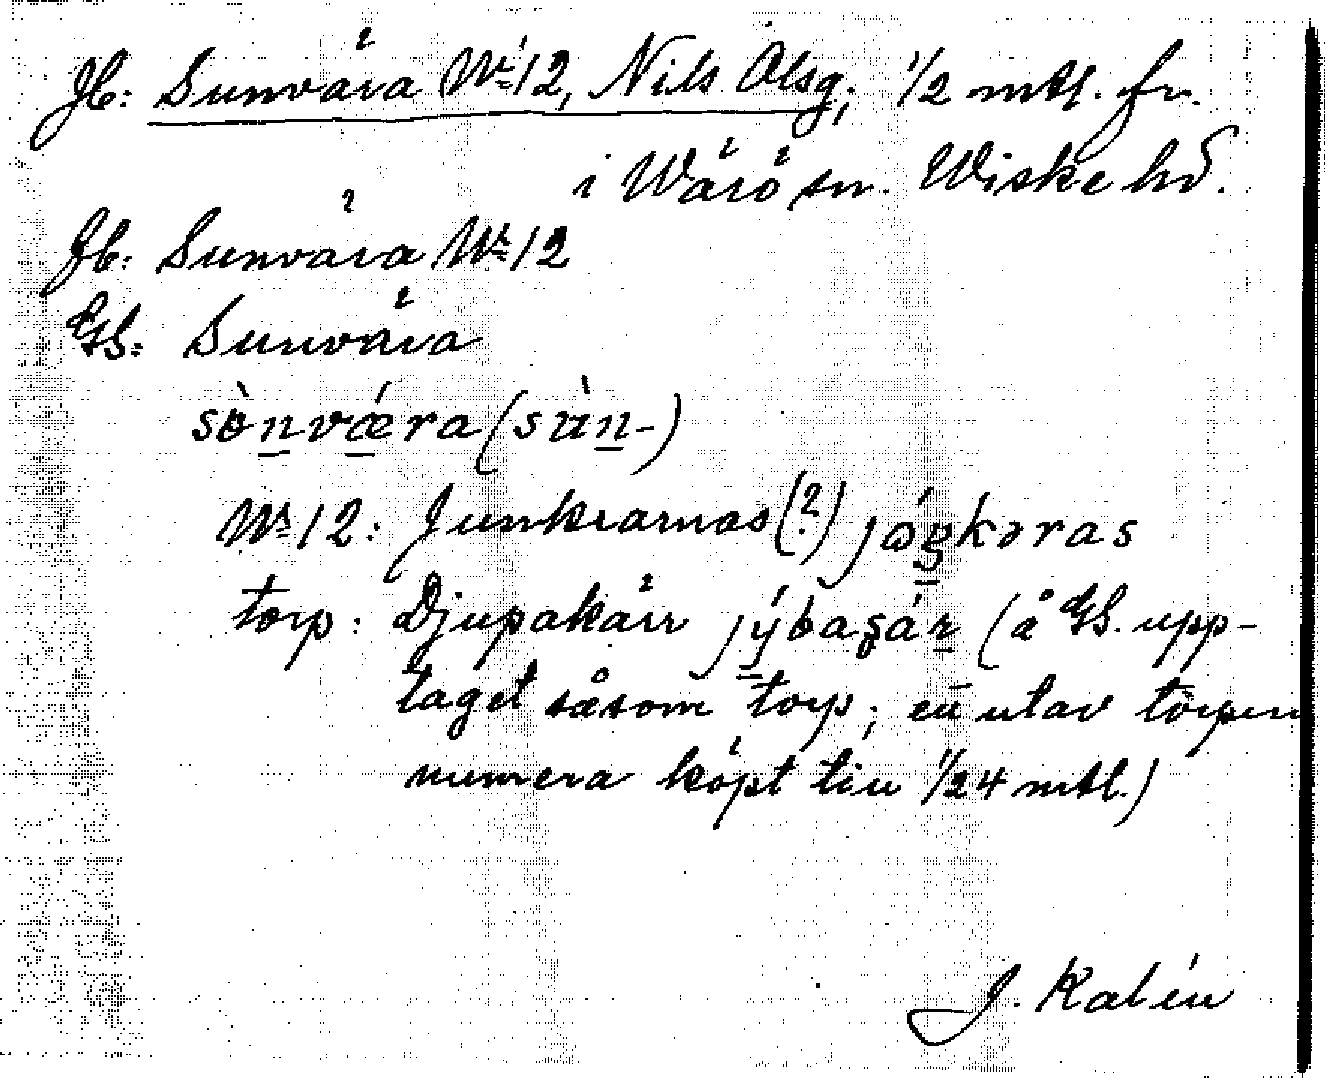 Jb: Sunvära Nr 12, Nils Olsg; 1/2 mtl. fr.
i Wärö sn. Wiske hd.
Jb: Sunvära Nr 12
GS: Sunvära
sènvǽra (sùn-)
Nr 12: Junkrarnas (?) jóŋkəras
torp: Djupakärr jýbaʒár (å GS. upp-
taget såsom torp; en utav torpen
numera köpt till 1/24 mtl.)
J. Kalén